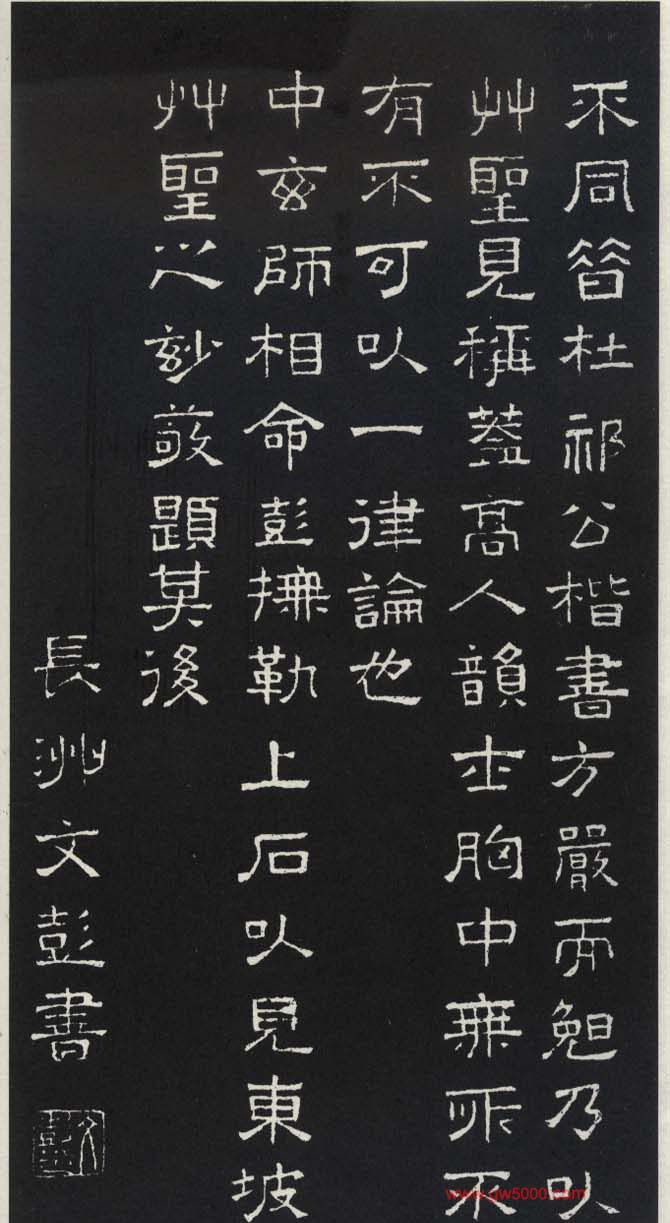 不同昔杜祁公楷書方嚴而晚乃以
艸聖見稱蓋高人韻士胸中無所不
有不可以一律論也
中玄師相命彭撫勒上石以見東坡
艸聖之玅敬題其後
長洲文彭書
www.gw5000.com